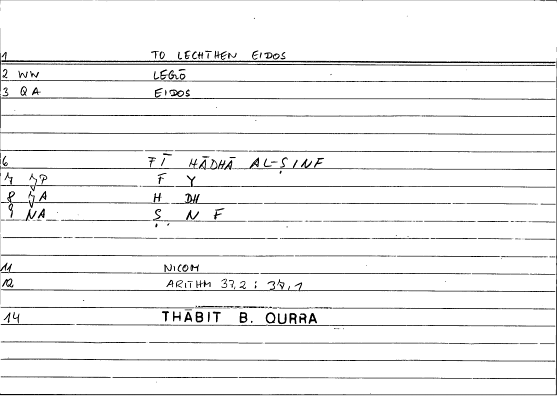 1 TO LECHTHEN EIDOS
2 WW LEGŌ
3 QA EIDOS
6 FĪ HĀDHĀ AL-ṢINF
7 7P F Y
8 7A H DH
9 NA Ṣ N F
11 NICOM
12 ARITHM 37,2 : 37,1
14 THĀBIT B. QURRA